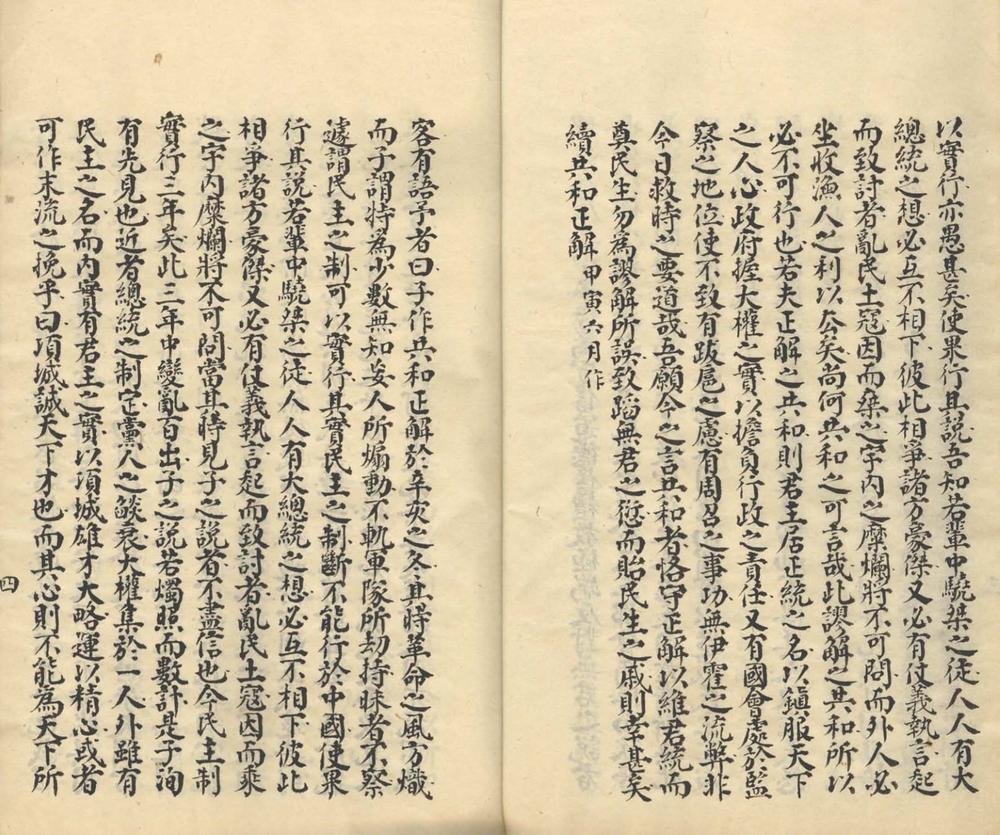 以實行亦愚甚矣使果行其說吾知若輩中驍桀之徒人人有大
總統之想必互不相下彼此相爭諸方豪傑又必有仗義執言起
而致討者亂民土寇因而乘之宇內之糜爛將不可問而外人必
坐收漁人之利以去矣尚何共和之可言哉此謬解之共和所以
必不可行也若夫正解之共和則君主居正統之名以鎮服天下
之人心政府握大權之實以擔負行政之責任又有國會處於監
察之地位使不致有跋扈之慮有周召之事功無伊霍之流弊非
今日救時之要道哉吾願今之言共和者恪守正解以維君統而
奠民生勿為謬解所誤致蹈無君之愆而貽民生之戚則幸甚矣
續共和正解甲寅六月作
客有語予者曰子作共和正解於辛亥之冬其時革命之風方熾
而子謂特為少數無知妄人所煽動不軌軍隊所劫持昧者不察
遽謂民主之制可以實行其實民主之制斷不能行於中國使果
行其說若輩中驍桀之徒人人有大總統之想必互不相下彼此
相爭諸方豪傑又必有仗義執言起而致討者亂民土寇因而乘
之宇內糜爛將不可問當其時見子之說者不盡信也今民主制
實行三年矣此三年中變亂百出子之說若燭照而數計是子洵
有先見也近者總統之制定黨人之燄衰大權集於一人外雖有
民主之名而內實有君主之實以項城雄才大略運以精心或者
可作末流之挽乎曰項城誠天下才也而其心則不能為天下所
四